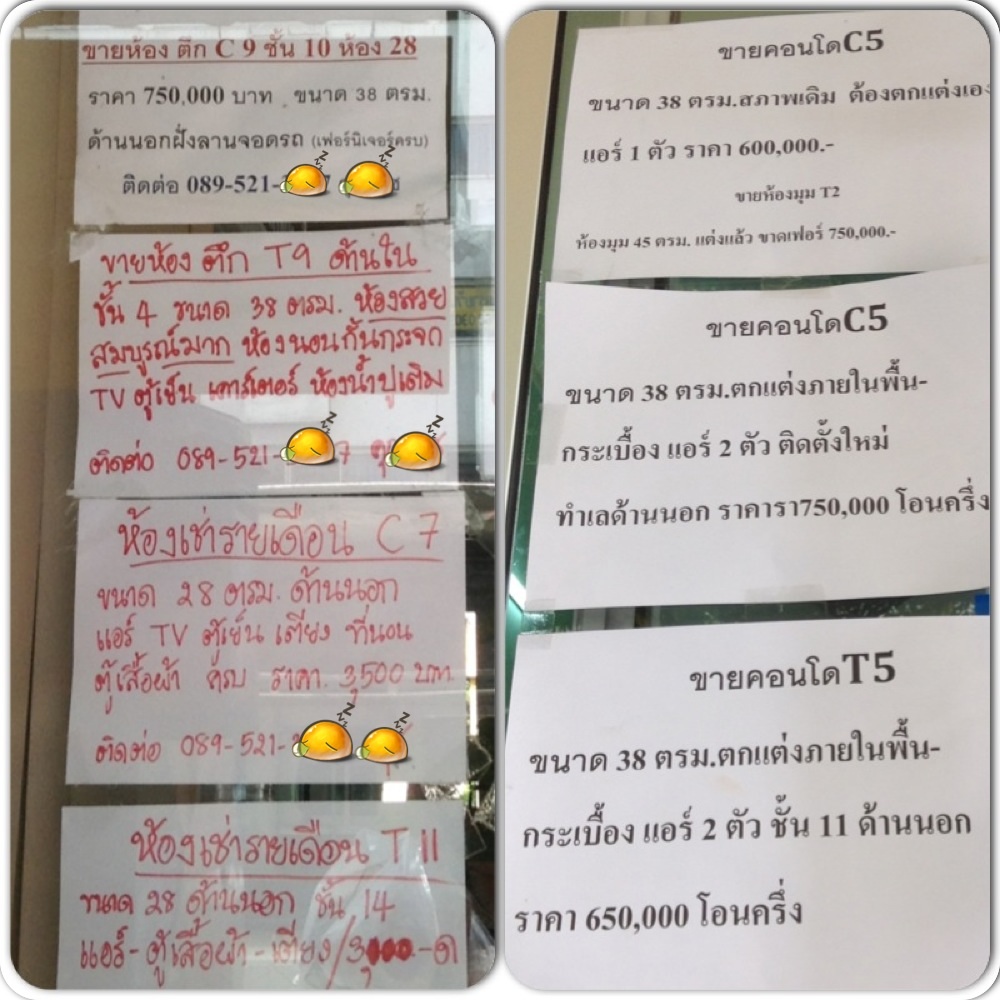 ขายห้อง ตึก C 9 ชั้น 10 ห้อง 28
ราคา 750,000 บาท ขนาด 38 ตรม.
ด้านนอกฝั่งลานจอดรถ (เฟอร์นิเจอร์ครบ)
ติดต่อ 089-521-
ขายห้อง ตึก T9 ด้านใน
ชั้น 4 ขนาด 38 ตรม. ห้องสวย
สมบูรณ์มาก ห้องนอนกั้นกระจก
TV ตู้เย็น เคาร์เตอร์ ห้องน้ำปูเต็ม
ติดต่อ 089-521- 7
ห้องเช่ารายเดือน C 7
ขนาด 28 ตรม. ด้านนอก
แอร์ TV ตู้เย็น เตียง ที่นอน
ตู้เสื้อผ้า ครบ ราคา 3,500 บาท.
ติดต่อ 089-521-
ห้องเช่ารายเดือน T 11
ขนาด 28 ด้านนอก ชั้น 14
แอร์-ตู้เสื้อผ้า-เตียง/3,000-ด
ขายคอนโดC5
ขนาด 38 ตรม.สภาพเดิม ต้องตกแต่งเอง
แอร์ 1 ตัว ราคา 600,000.-
ขายห้องมุม T2
ห้องมุม 45 ตรม. แต่งแล้ว ขาดเฟอร์ 750,000.-
ขายคอนโดC5
ขนาด 38 ตรม.ตกแต่งภายในพื้น-
กระเบื้อง แอร์ 2 ตัว ติดตั้งใหม่
ทำเลด้านนอก ราคารา750,000 โอนครึ่ง
ขายคอนโดT5
ขนาด 38 ตรม.ตกแต่งภายในพื้น-
กระเบื้อง แอร์ 2 ตัว ชั้น 11 ด้านนอก
ราคา 650,000 โอนครึ่ง